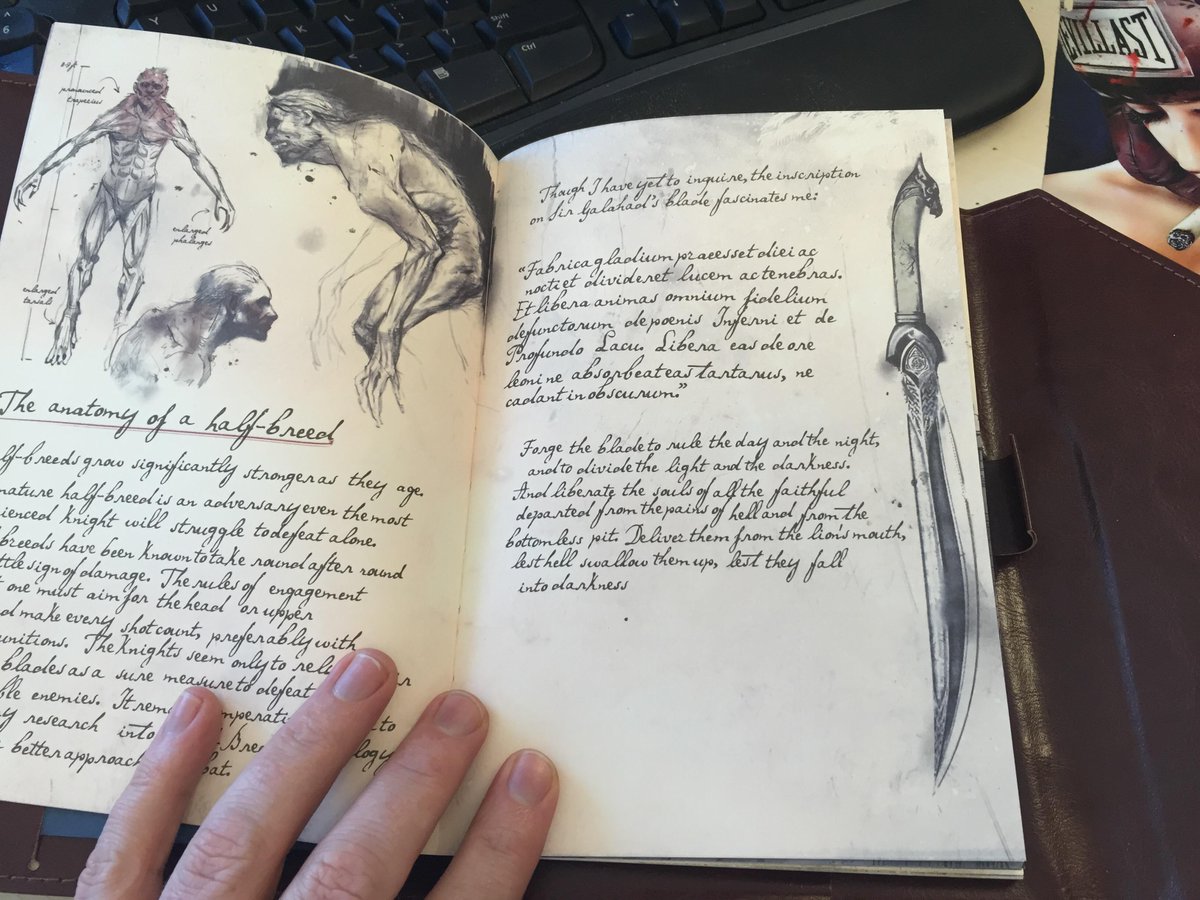 Shift
Ctrl
6
HILLAST
pronounced
trapezius
enlarged
phalanges
enlarged
tarsals
The anatomy of a half-breed
lf-breeds grow significantly stronger as they age.
mature half-breed is an adversary even the most
ienced Knight will struggle to defeat alone.
breeds have been known to take round after round
ttle sign of damage. The rules of engagement
t one must aim for the head or upper
d make every shot count, preferably with
unitions. The Knights seem only to rely
blades as a sure measure to defeat
ble enemies. It rem imperati to
y research into Bre logy
better approach bat.
Though I have yet to inquire, the inscription
on Sir Galahad's blade fascinates me:
"Fabrica gladium praeesset diei ac
nocti et divideret lucem ac tenebras.
Et libera animas omnium fidelium
defunctorum de poenis Inferni et de
Profundo Lacu. Libera eas de ore
leoni ne absorbeat eas tartarus, ne
cadant in obscurum."
Forge the blade to rule the day and the night,
and to divide the light and the darkness.
And liberate the souls of all the faithful
departed from the pains of hell and from the
bottomless pit. Deliver them from the lion's mouth,
lest hell swallow them up, lest they fall
into darkness